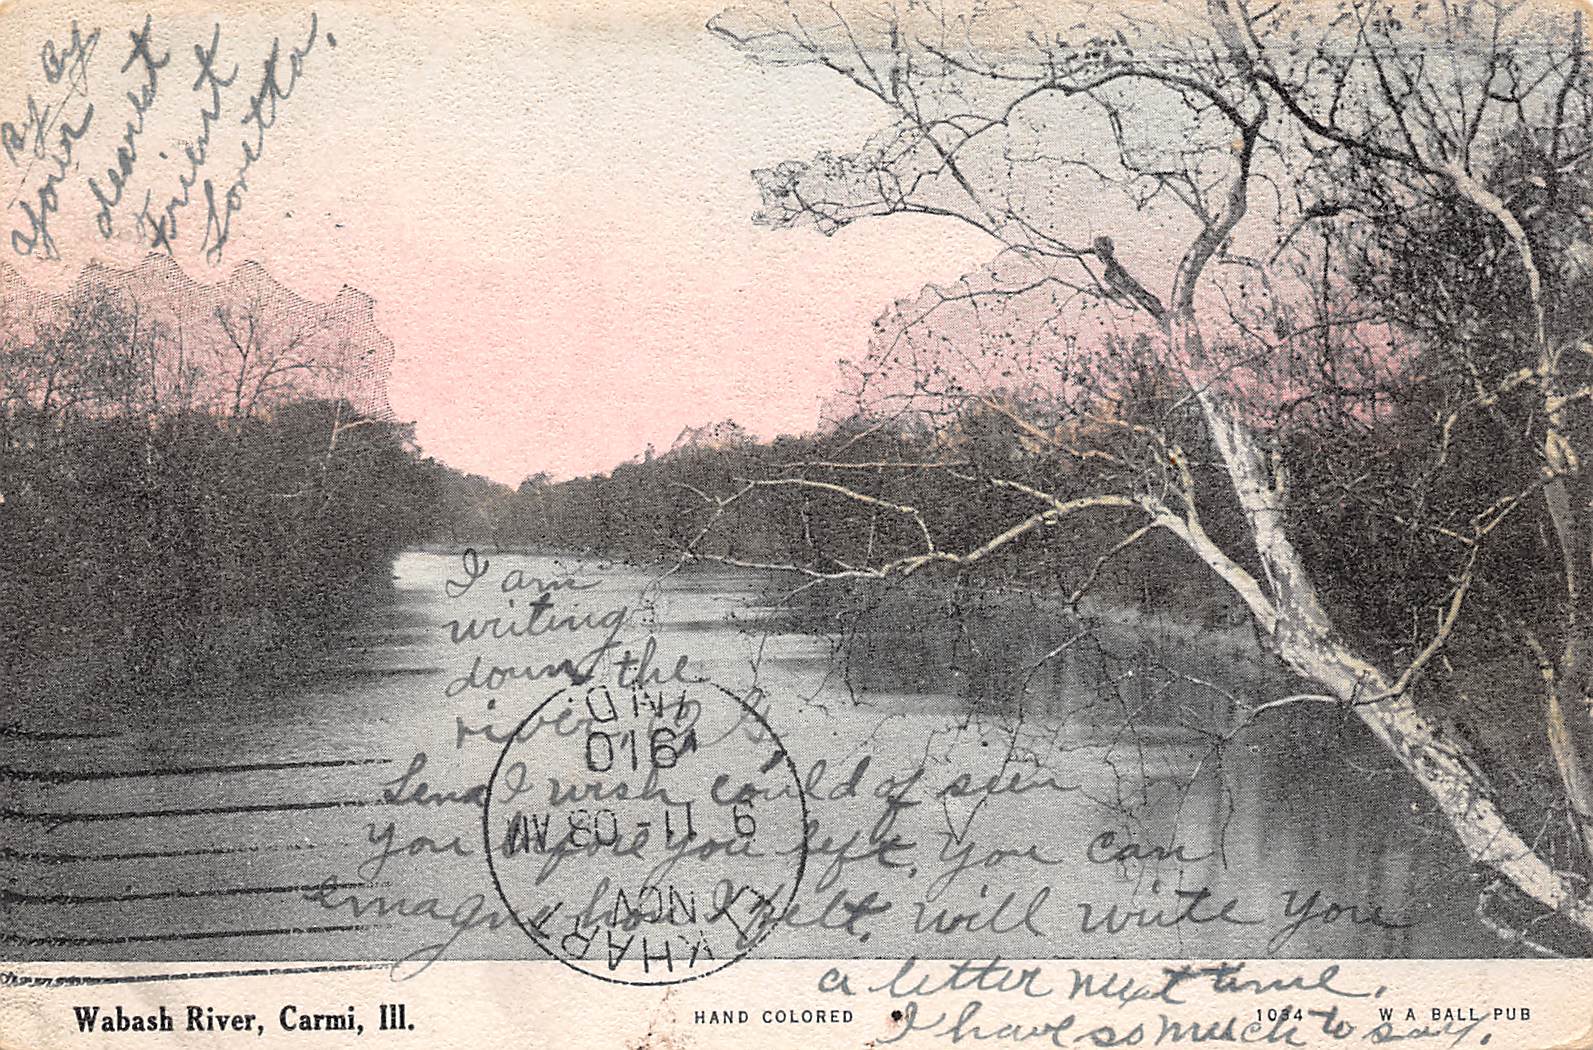 By By
your
dearest
Frient
Loretta.
I am
writing
down the
river
Lena I wish could of seen
you before you left, you can
imagne how I felt. will write you
a letter next time.
I have so much to say.
IND.
1910
9 11-08 AM
NOV
Wabash River, Carmi, Ill.
HAND COLORED
1034 W A BALL PUB